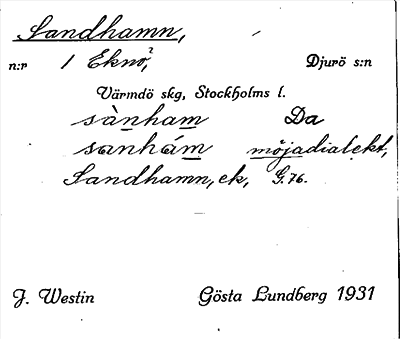 Sandhamn,
n:r 1 Eknö,² Djurö s:n
Värmdö skg, Stockholms l.
sànham Da
sanhám möjadialekt,
Sandhamn, ek, G. 76.
J. Westin Gösta Lundberg 1931